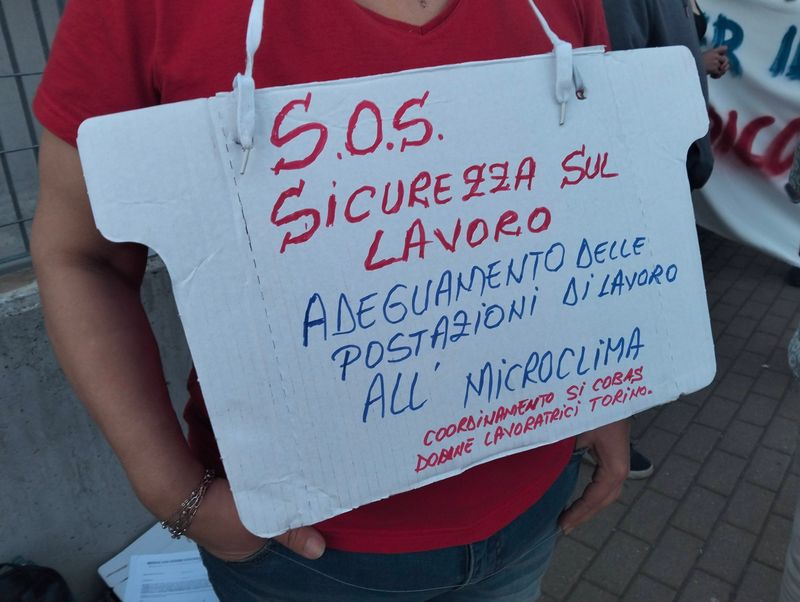 S.O.S.
SICUREZZA SUL
LAVORO
ADEGUAMENTO DELLE
POSTAZIONI DI LAVORO
ALL' MICROCLIMA
COORDINAMENTO SI COBAS
DOBINE LAVORATRICI TORINO.